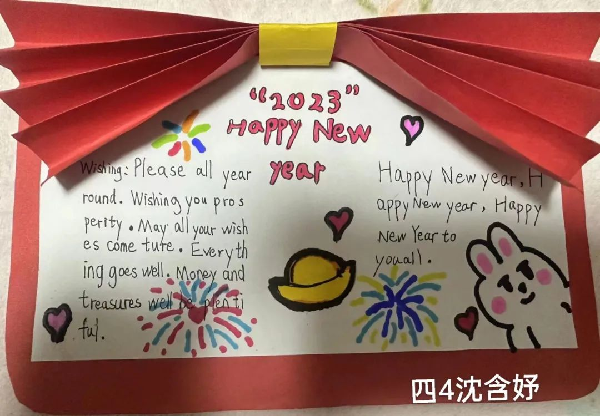 “2023”
Happy New
year
Wishing: Please all year
round. Wishing you pros
perity. May all your wish
es come ture. Everyth
ing goes well. Money and
treasures well be plenti
ful.
Happy New year, H
appy New year, Happy
New Year to
you all.
四4沈含妤